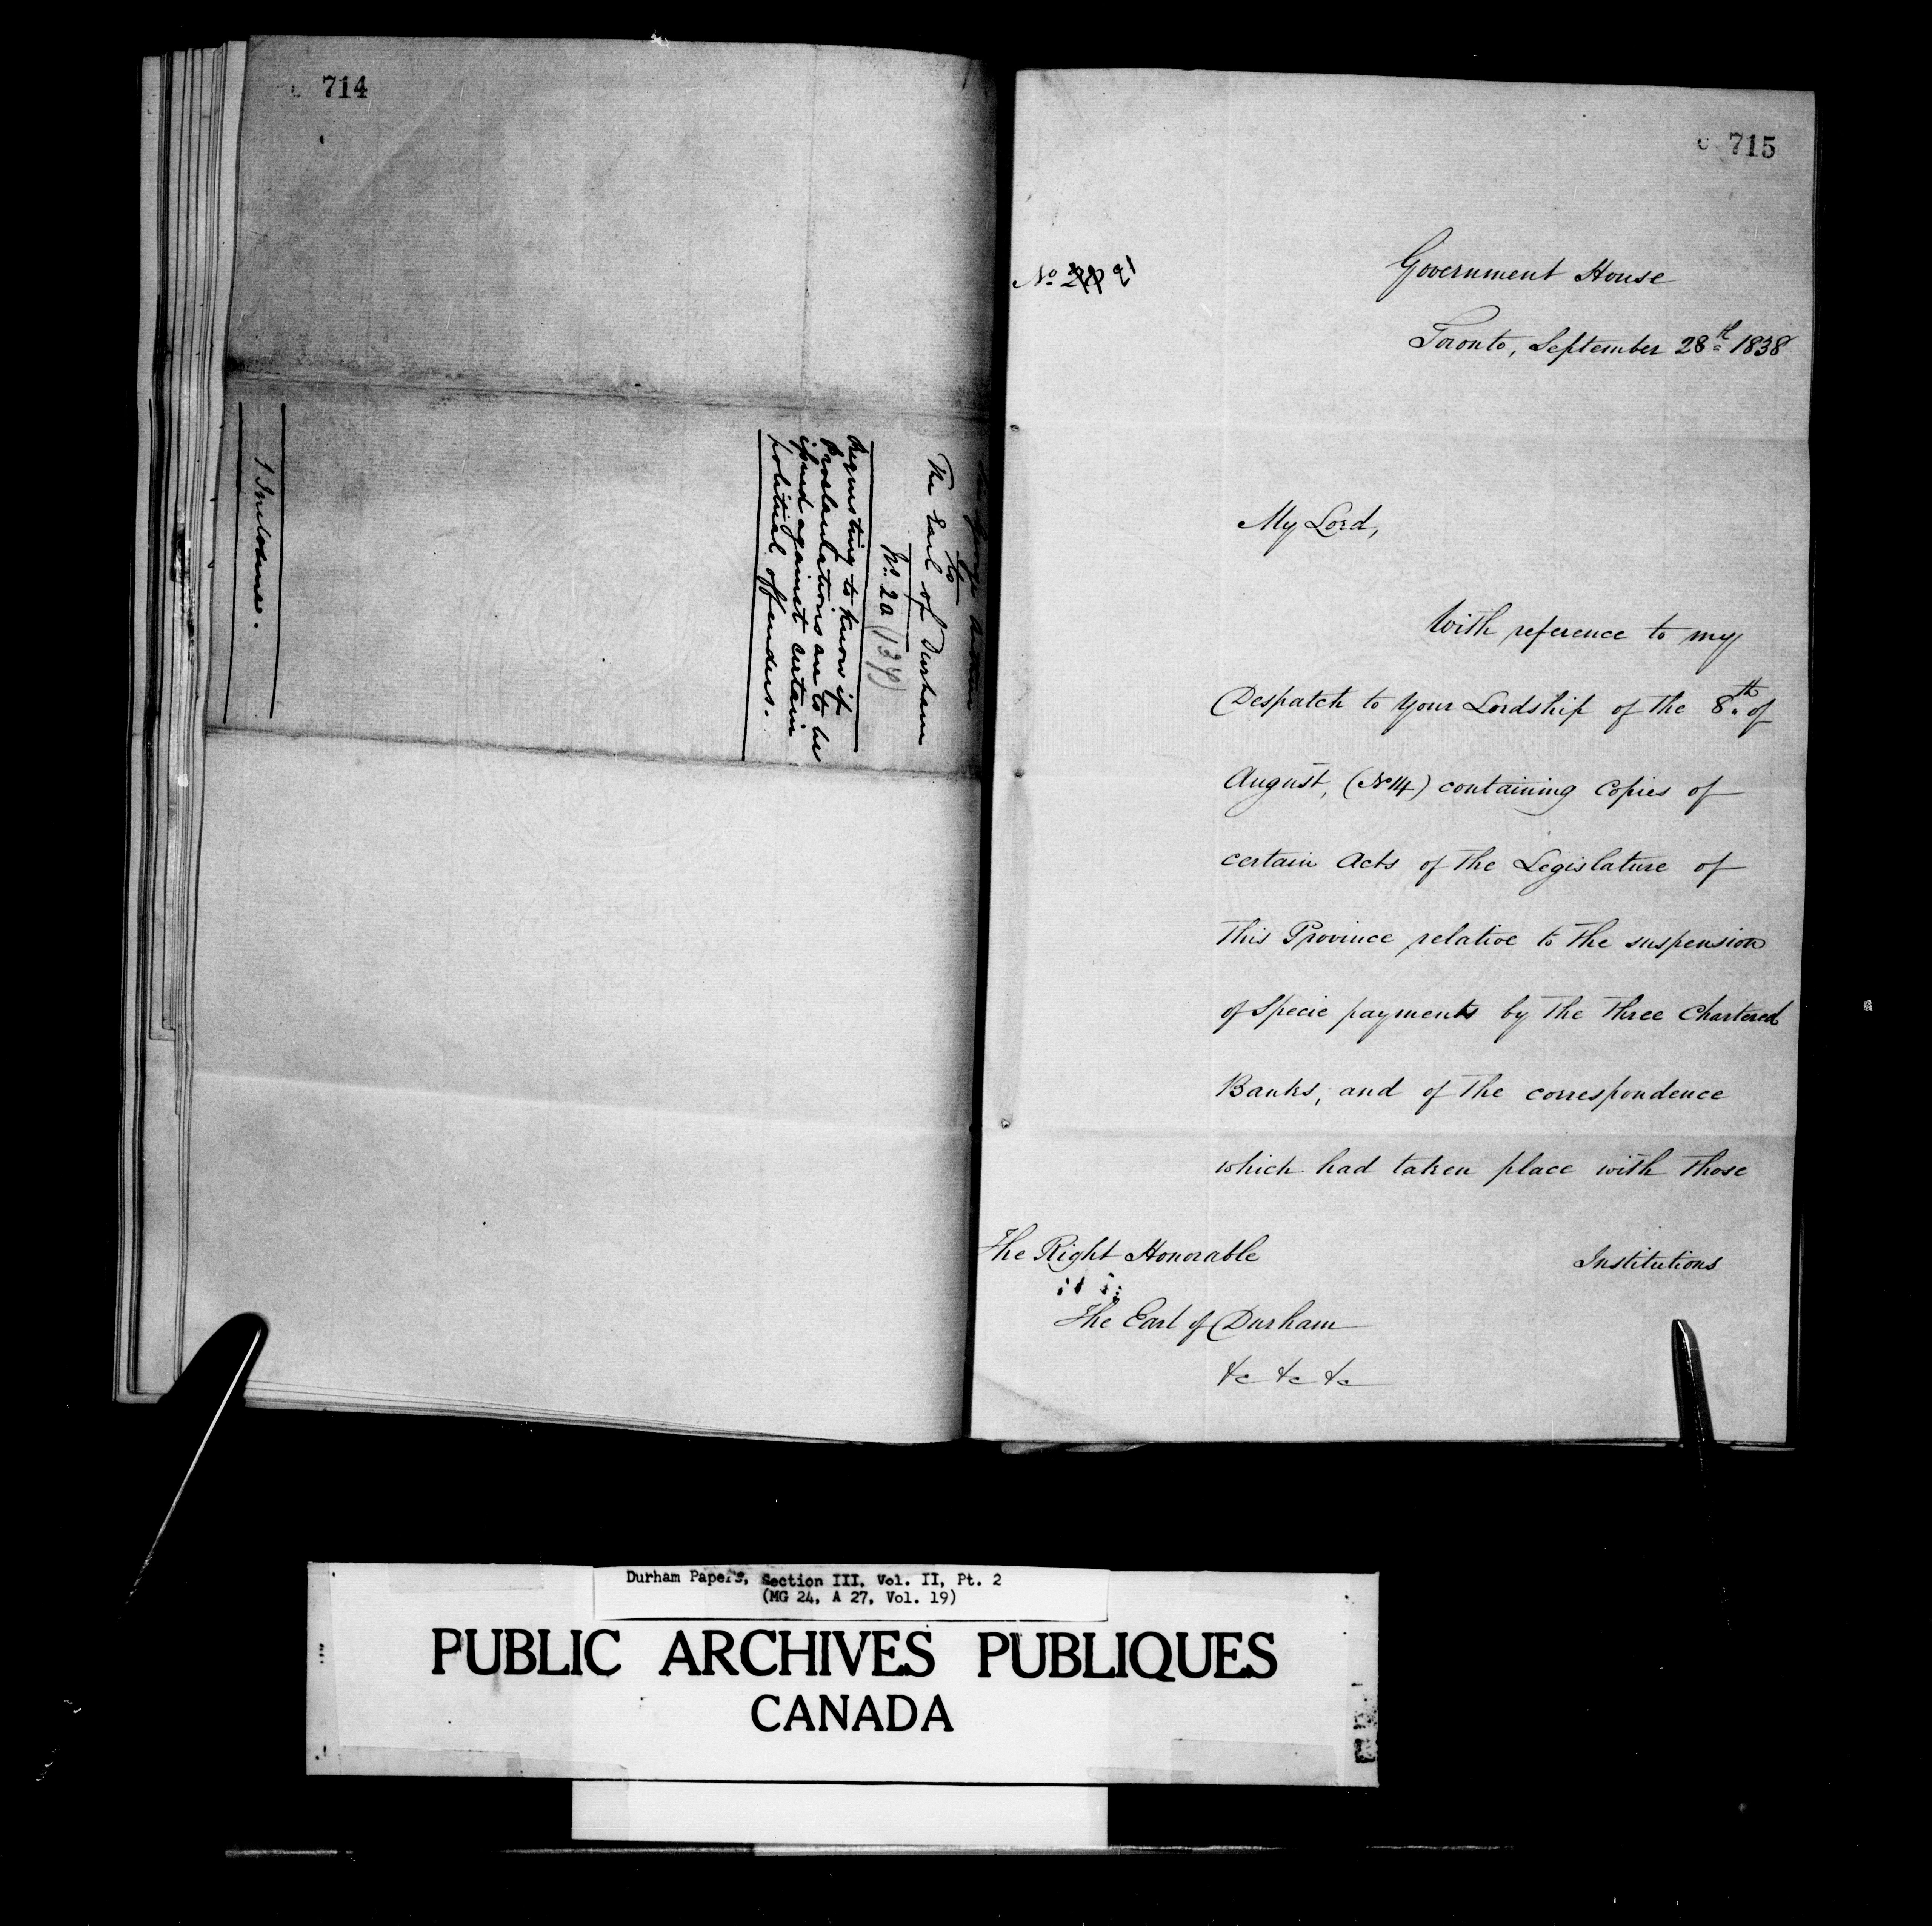 714
Sir George Arthur
to
The Earl of Durham
No. 20
Requesting to know if
Proclamations are to be
issued against certain
political offenders.
1 Inclosure.
715
No 21
Government House
Toronto, September 28th 1838
My Lord,
With reference to my
Despatch to Your Lordship of the 8th of
August, (No 14) containing Copies of
certain Acts of the Legislature of
this Province relative to the suspension
of Specie payments by the three Chartered
Banks, and of the correspondence
which had taken place with those
Institutions
The Right Honorable
The Earl of Durham
&c &c &c
Durham Papers, Section III, Vol. II, Pt. 2
(MG 24, A 27, Vol. 19)
PUBLIC ARCHIVES PUBLIQUES
CANADA